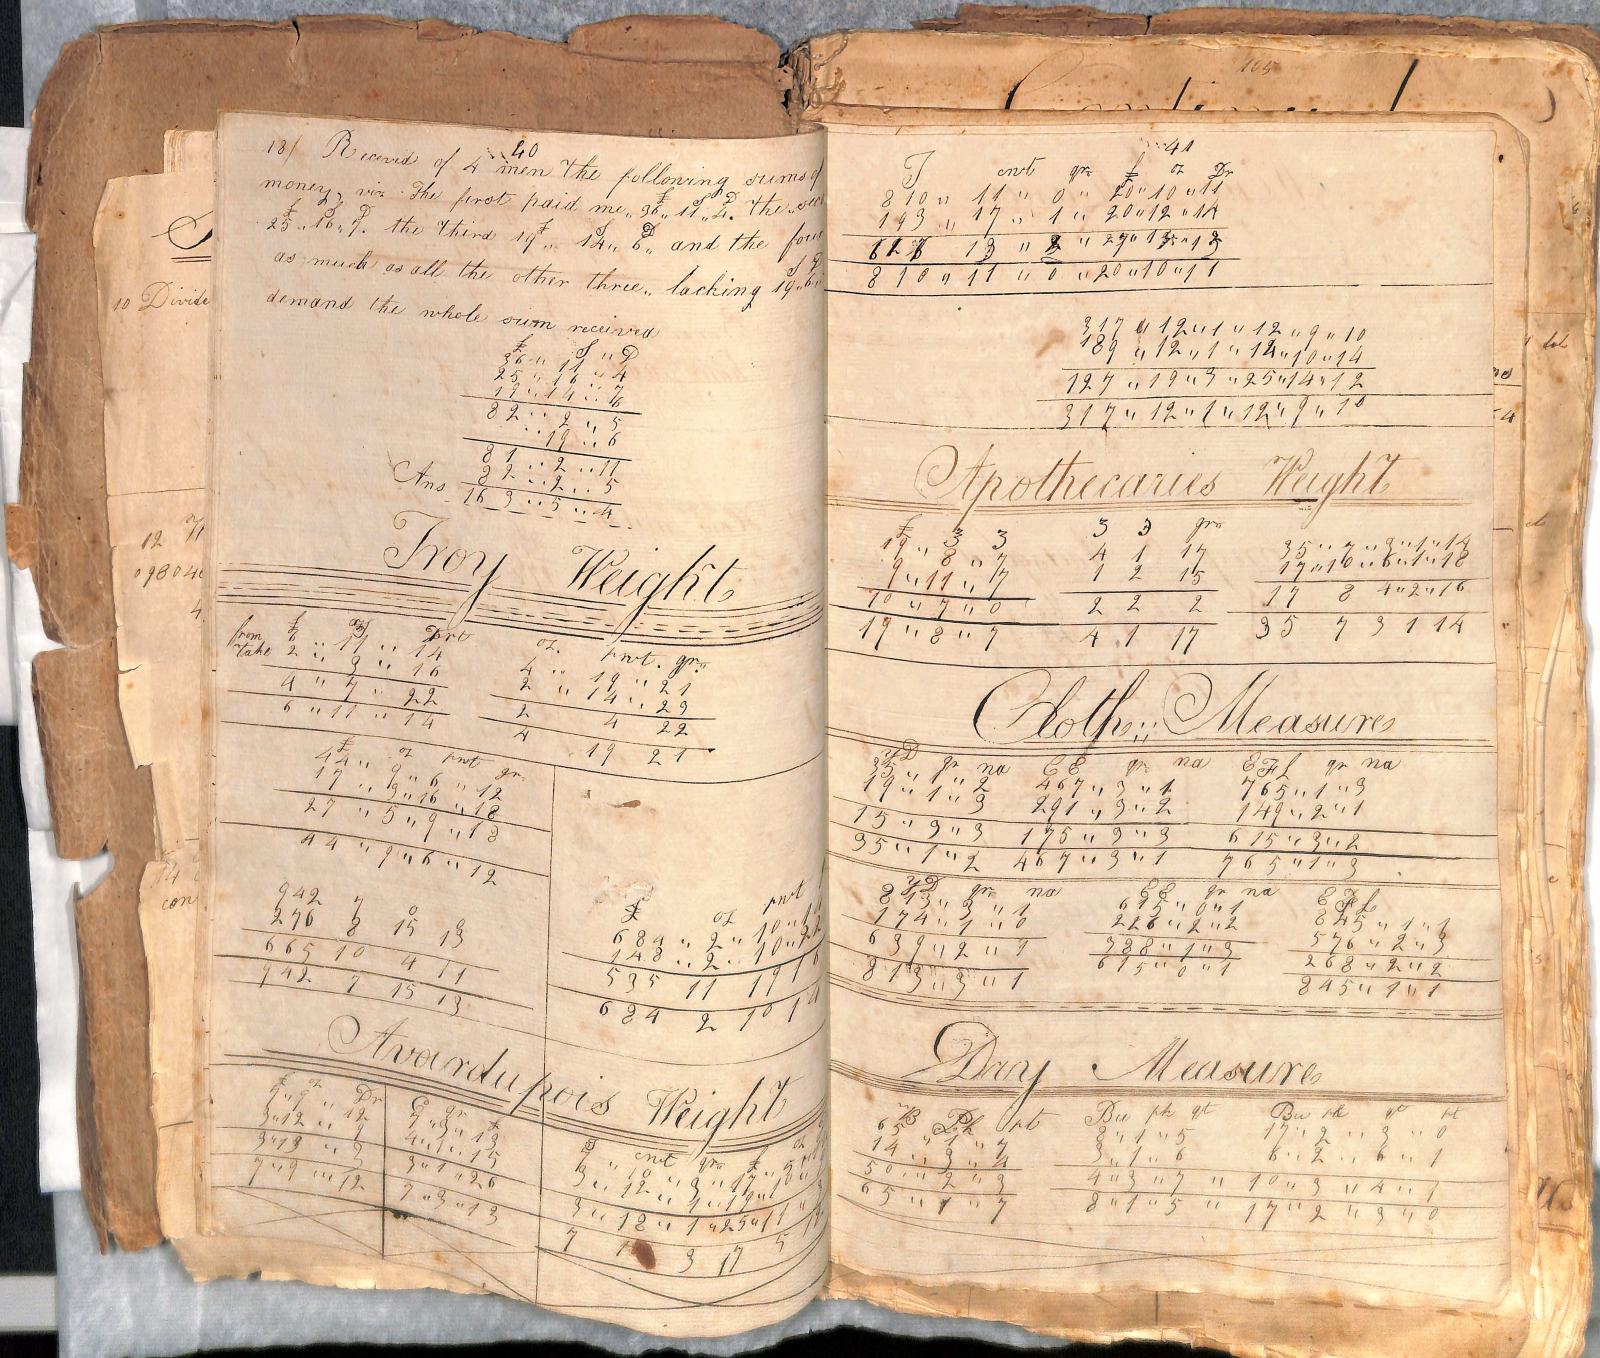 40
18/ Received of 4 men the following sums of
money, viz. The first paid me,, 36£,, 11S,, 4D. the
25£,, 16S,, 7D. the third 19£,, 14S,, 6D,, and the
as much as all the other three,, lacking 19S,, 6D
demand the whole sum received
£ S ,, D
36 ,, 11 ,, 4
25 ,, 16 ,, 7
19 ,, 14 ,, 6
82 ,, 2 ,, 5
19 ,, 6
81 ,, 2 ,, 11
82 ,, 2 ,, 5
Ans 163 ,, 5 ,, 4
Troy Weight
from 6 ,, 11 ,, 14
take 2 ,, 9 ,, 16
4 ,, 7 ,, 22
6 ,, 11 ,, 14
oz. pwt. gr.
4 ,, 19 ,, 21
2 ,, 14 ,, 23
2 4 22
4 19 21
£ oz pwt gr
44 ,, 9 ,, 6 ,, 12
17 ,, 3 ,, 16 ,, 18
27 ,, 5 ,, 9 ,, 18
44 ,, 9 ,, 6 ,, 12
942 7 0
276 8 15 13
665 10 4 11
942 7 15 13
£ oz pwt
684 ,, 2 ,, 10 ,,
148 ,, 2 ,, 10 ,,
535 11 19 16
684 2 10 1
Avardupois Weight
£ oz Dr
7 ,, 9 ,, 12
3 ,, 12 ,, 9
3 ,, 13 ,, 3
7 ,, 9 ,, 12
C qr £
7 ,, 3 ,, 13
4 ,, 1 ,, 15
3 ,, 1 ,, 26
7 ,, 3 ,, 13
T cwt qr £ oz
3 ,, 18 ,, 1 ,, 25 ,, 11
7 3 17 5
105
Continued
10 Divide
12
09804
4
con
41
T cwt qr £ oz Dr
810 ,, 11 ,, 0 ,, 20 ,, 10 ,, 11
193 ,, 17 ,, 1 ,, 20 ,, 12 ,, 14
13 ,, 2 ,, 27 ,, 13 ,, 13
810 ,, 11 ,, 0 ,, 20 ,, 10 ,, 11
317 ,, 12 ,, 1 ,, 12 ,, 9 ,, 10
189 ,, 12 ,, 1 ,, 14 ,, 10 ,, 14
127 ,, 19 ,, 3 ,, 25 ,, 14 ,, 12
317 ,, 12 ,, 1 ,, 12 ,, 9 ,, 10
Apothecaries Weight
£ ℥ ʒ
19 ,, 8 ,, 7
9 ,, 11 ,, 7
10 ,, 7 ,, 0
19 ,, 8 ,, 7
ʒ ℈ gr
4 1 17
1 2 15
2 2 2
4 1 17
35 ,, 7 ,, 3 ,, 1 ,, 14
17 ,, 10 ,, 6 ,, 1 ,, 18
17 8 4 ,, 2 ,, 16
35 7 3 1 14
Cloth,, Measure
YD qr na
35 ,, 1 ,, 2
19 ,, 1 ,, 3
15 ,, 3 ,, 3
35 ,, 1 ,, 2
EE qr na
467 ,, 3 ,, 1
291 ,, 3 ,, 2
175 ,, 9 ,, 3
467 ,, 3 ,, 1
EFl qr na
765 ,, 1 ,, 3
149 ,, 2 ,, 1
615 ,, 3 ,, 2
765 ,, 1 ,, 3
YD qr na
813 ,, 3 ,, 1
174 ,, 1 ,, 0
639 ,, 2 ,, 1
813 ,, 3 ,, 1
EE qr na
615 ,, 0 ,, 1
226 ,, 2 ,, 2
388 ,, 1 ,, 3
615 ,, 0 ,, 1
EFl
845 ,, 1 ,, 1
576 ,, 2 ,, 3
268 ,, 2 ,, 2
845 ,, 1 ,, 1
Dry Measure
B Pk qt
65 ,, 1 ,, 7
14 ,, 3 ,, 4
50 ,, 2 ,, 3
65 ,, 1 ,, 7
Bu pk qt
8 ,, 1 ,, 5
3 ,, 1 ,, 6
4 ,, 3 ,, 7
8 ,, 1 ,, 5
Bu pk qt pt
17 ,, 2 ,, 3 ,, 0
6 ,, 2 ,, 6 ,, 1
10 ,, 3 ,, 4 ,, 1
17 ,, 2 ,, 3 ,, 0